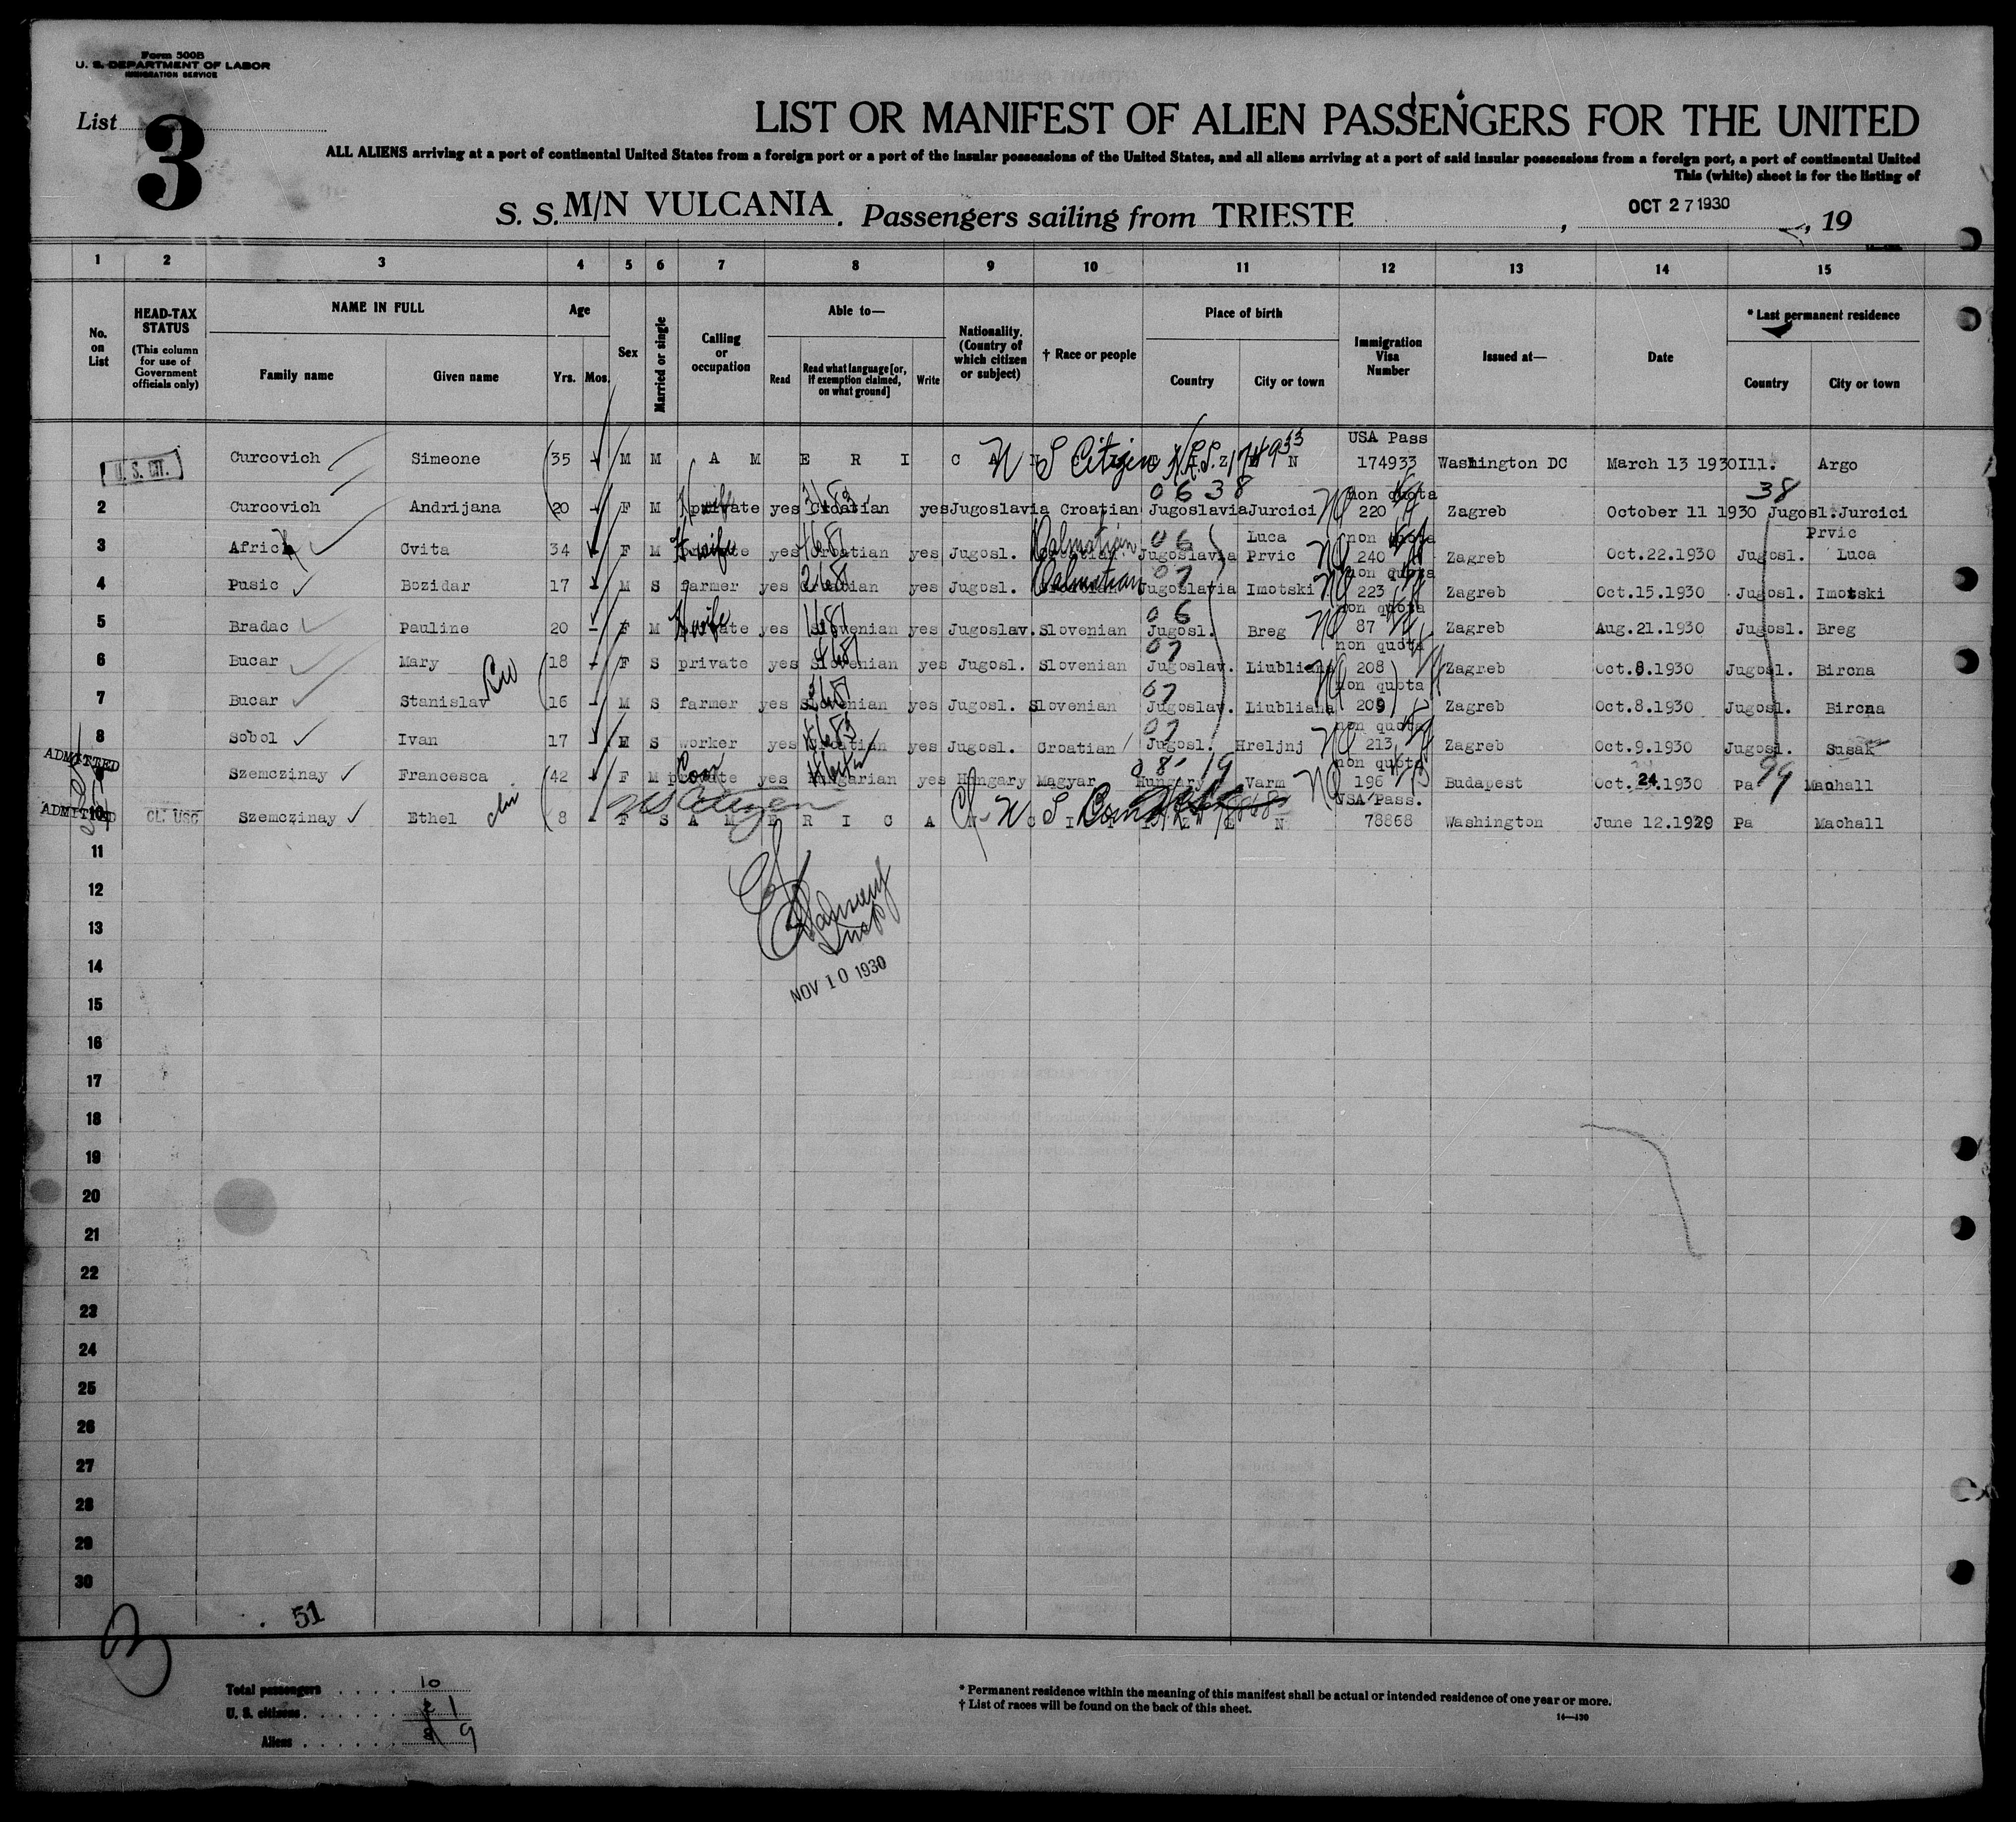 Form 500B
U. S. DEPARTMENT OF LABOR
IMMIGRATION SERVICE
List 3
LIST OR MANIFEST OF ALIEN PASSENGERS FOR THE UNITED
ALL ALIENS arriving at a port of continental United States from a foreign port or a port of the insular possessions of the United States, and all aliens arriving at a port of said insular possessions from a foreign port, a port of continental United
This (white) sheet is for the listing of
S. S. M/N VULCANIA. Passengers sailing from TRIESTE, OCT 27 1930, 19
1 2 3 4 5 6 7 8 9 10 11 12 13 14 15
No. on List
HEAD-TAX STATUS (This column for use of Government officials only)
NAME IN FULL
Family name Given name
Age
Yrs. Mos.
Sex
Married or single
Calling or occupation
Able to—
Read Read what language [or, if exemption claimed, on what ground] Write
Nationality. (Country of which citizen or subject)
† Race or people
Place of birth
Country City or town
Immigration Visa Number
Issued at—
Date
* Last permanent residence
Country City or town
USA Pass
U. S. CIT. Curcovich Simeone 35 - M M A M E R I C A N U S Citizen 174933 Washington DC March 13 1930 Ill. Argo
0 6 3 8 non quota 38
2 Curcovich Andrijana 20 - F M H wife private yes Croatian yes Jugoslavia Croatian Jugoslavia Jurcici 220 Zagreb October 11 1930 Jugosl. Jurcici
Dalmatian 0 6 Luca non quota Prvic
3 Afric Cvita 34 - F M H wife yes Croatian yes Jugosl. Croatian Jugoslavia Prvic 240 Zagreb Oct.22.1930 Jugosl. Luca
Dalmatian 07 non quota
4 Pusic Bozidar 17 - M S farmer yes Croatian yes Jugosl. Croatian Jugoslavia Imotski 223 Zagreb Oct.15.1930 Jugosl. Imotski
0 6 non quota
5 Bradac Pauline 20 - F M H wife private yes Slovenian yes Jugoslav. Slovenian Jugosl. Breg 87 Zagreb Aug.21.1930 Jugosl. Breg
07 non quota
6 Bucar Mary 18 - F S private yes Slovenian yes Jugosl. Slovenian Jugoslav. Liubliana 208 Zagreb Oct.8.1930 Jugosl. Bircna
07 non quota
7 Bucar Stanislav 16 - M S farmer yes Slovenian yes Jugosl. Slovenian Jugoslav. Liubliana 209 Zagreb Oct.8.1930 Jugosl. Bircna
07 non quota
8 Sobol Ivan 17 - M S worker yes Croatian yes Jugosl. Croatian Jugosl. Hreljnj 213 Zagreb Oct.9.1930 Jugosl. Susak
ADMITTED non quota 99
Szemczinay Francesca 42 - F M private yes Hungarian yes Hungary Magyar Hungary Varm 196 Budapest Oct.24.1930 Pa Machall
US Citizen USA Pass.
ADMITTED 10 CL. USC Szemczinay Ethel 8 - F S A M E R I C A N C I T I Z E N 78868 Washington June 12.1929 Pa Machall
11
12
13
Insp
14
NOV 10 1930
15
16
17
18
19
20
21
22
23
24
25
26
27
28
29
30
51
3
Total passengers 10
U. S. citizens 2 1
Aliens 8 9
* Permanent residence within the meaning of this manifest shall be actual or intended residence of one year or more.
† List of races will be found on the back of this sheet.
14—430